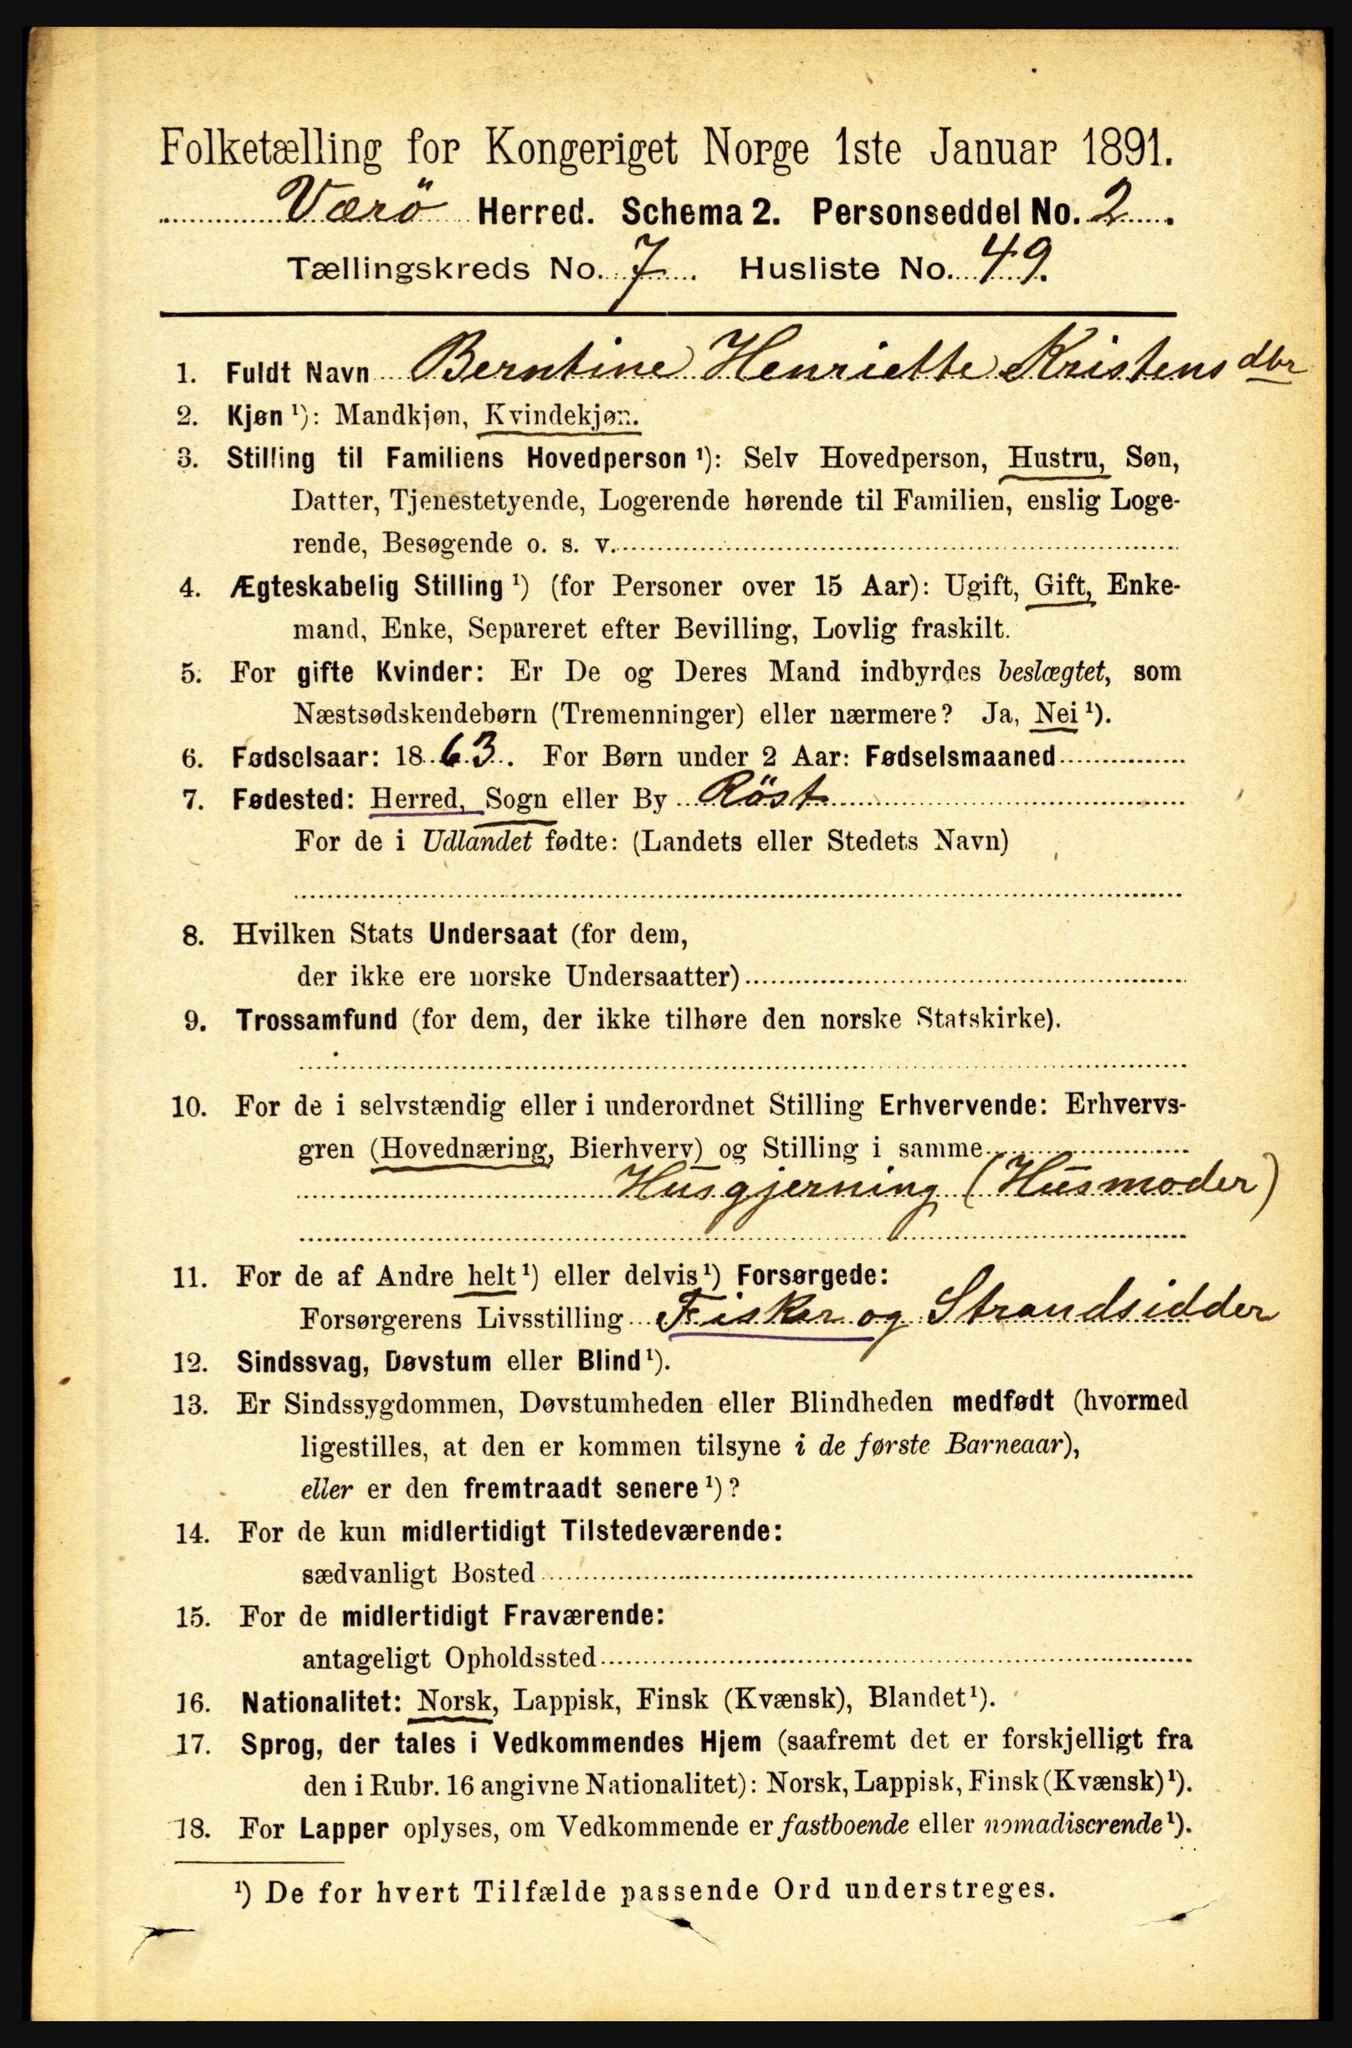 Folketælling for Kongeriget Norge 1ste Januar 1891.
Værö Herred. Schema 2. Personseddel No. 2.
Tællingskreds No. 7. Husliste No. 49.
1. Fuldt Navn Berntine Henriette Kristensdtr
2. Kjøn ¹): Mandkjøn, Kvindekjøn.
3. Stilling til Familiens Hovedperson ¹): Selv Hovedperson, Hustru, Søn,
Datter, Tjenestetyende, Logerende hørende til Familien, enslig Loge-
rende, Besøgende o. s. v.
4. Ægteskabelig Stilling ¹) (for Personer over 15 Aar): Ugift, Gift, Enke-
mand, Enke, Separeret efter Bevilling, Lovlig fraskilt.
5. For gifte Kvinder: Er De og Deres Mand indbyrdes beslægtet, som
Næstsødskendebørn (Tremenninger) eller nærmere? Ja, Nei ¹).
6. Fødselsaar: 1863. For Børn under 2 Aar: Fødselsmaaned
7. Fødested: Herred, Sogn eller By Röst
For de i Udlandet fødte: (Landets eller Stedets Navn)
8. Hvilken Stats Undersaat (for dem,
der ikke ere norske Undersaatter)
9. Trossamfund (for dem, der ikke tilhøre den norske Statskirke).
10. For de i selvstændig eller i underordnet Stilling Erhvervende: Erhvervs-
gren (Hovednæring, Bierhverv) og Stilling i samme
Husgjerning (Husmoder)
11. For de af Andre helt ¹) eller delvis ¹) Forsørgede:
Forsørgerens Livsstilling Fisker og Strandsidder
12. Sindssvag, Døvstum eller Blind ¹).
13. Er Sindssygdommen, Døvstumheden eller Blindheden medfødt (hvormed
ligestilles, at den er kommen tilsyne i de første Barneaar),
eller er den fremtraadt senere ¹)?
14. For de kun midlertidigt Tilstedeværende:
sædvanligt Bosted
15. For de midlertidigt Fraværende:
antageligt Opholdssted
16. Nationalitet: Norsk, Lappisk, Finsk (Kvænsk), Blandet ¹).
17. Sprog, der tales i Vedkommendes Hjem (saafremt det er forskjelligt fra
den i Rubr. 16 angivne Nationalitet): Norsk, Lappisk, Finsk (Kvænsk) ¹).
18. For Lapper oplyses, om Vedkommende er fastboende eller nomadiserende ¹).
¹) De for hvert Tilfælde passende Ord understreges.